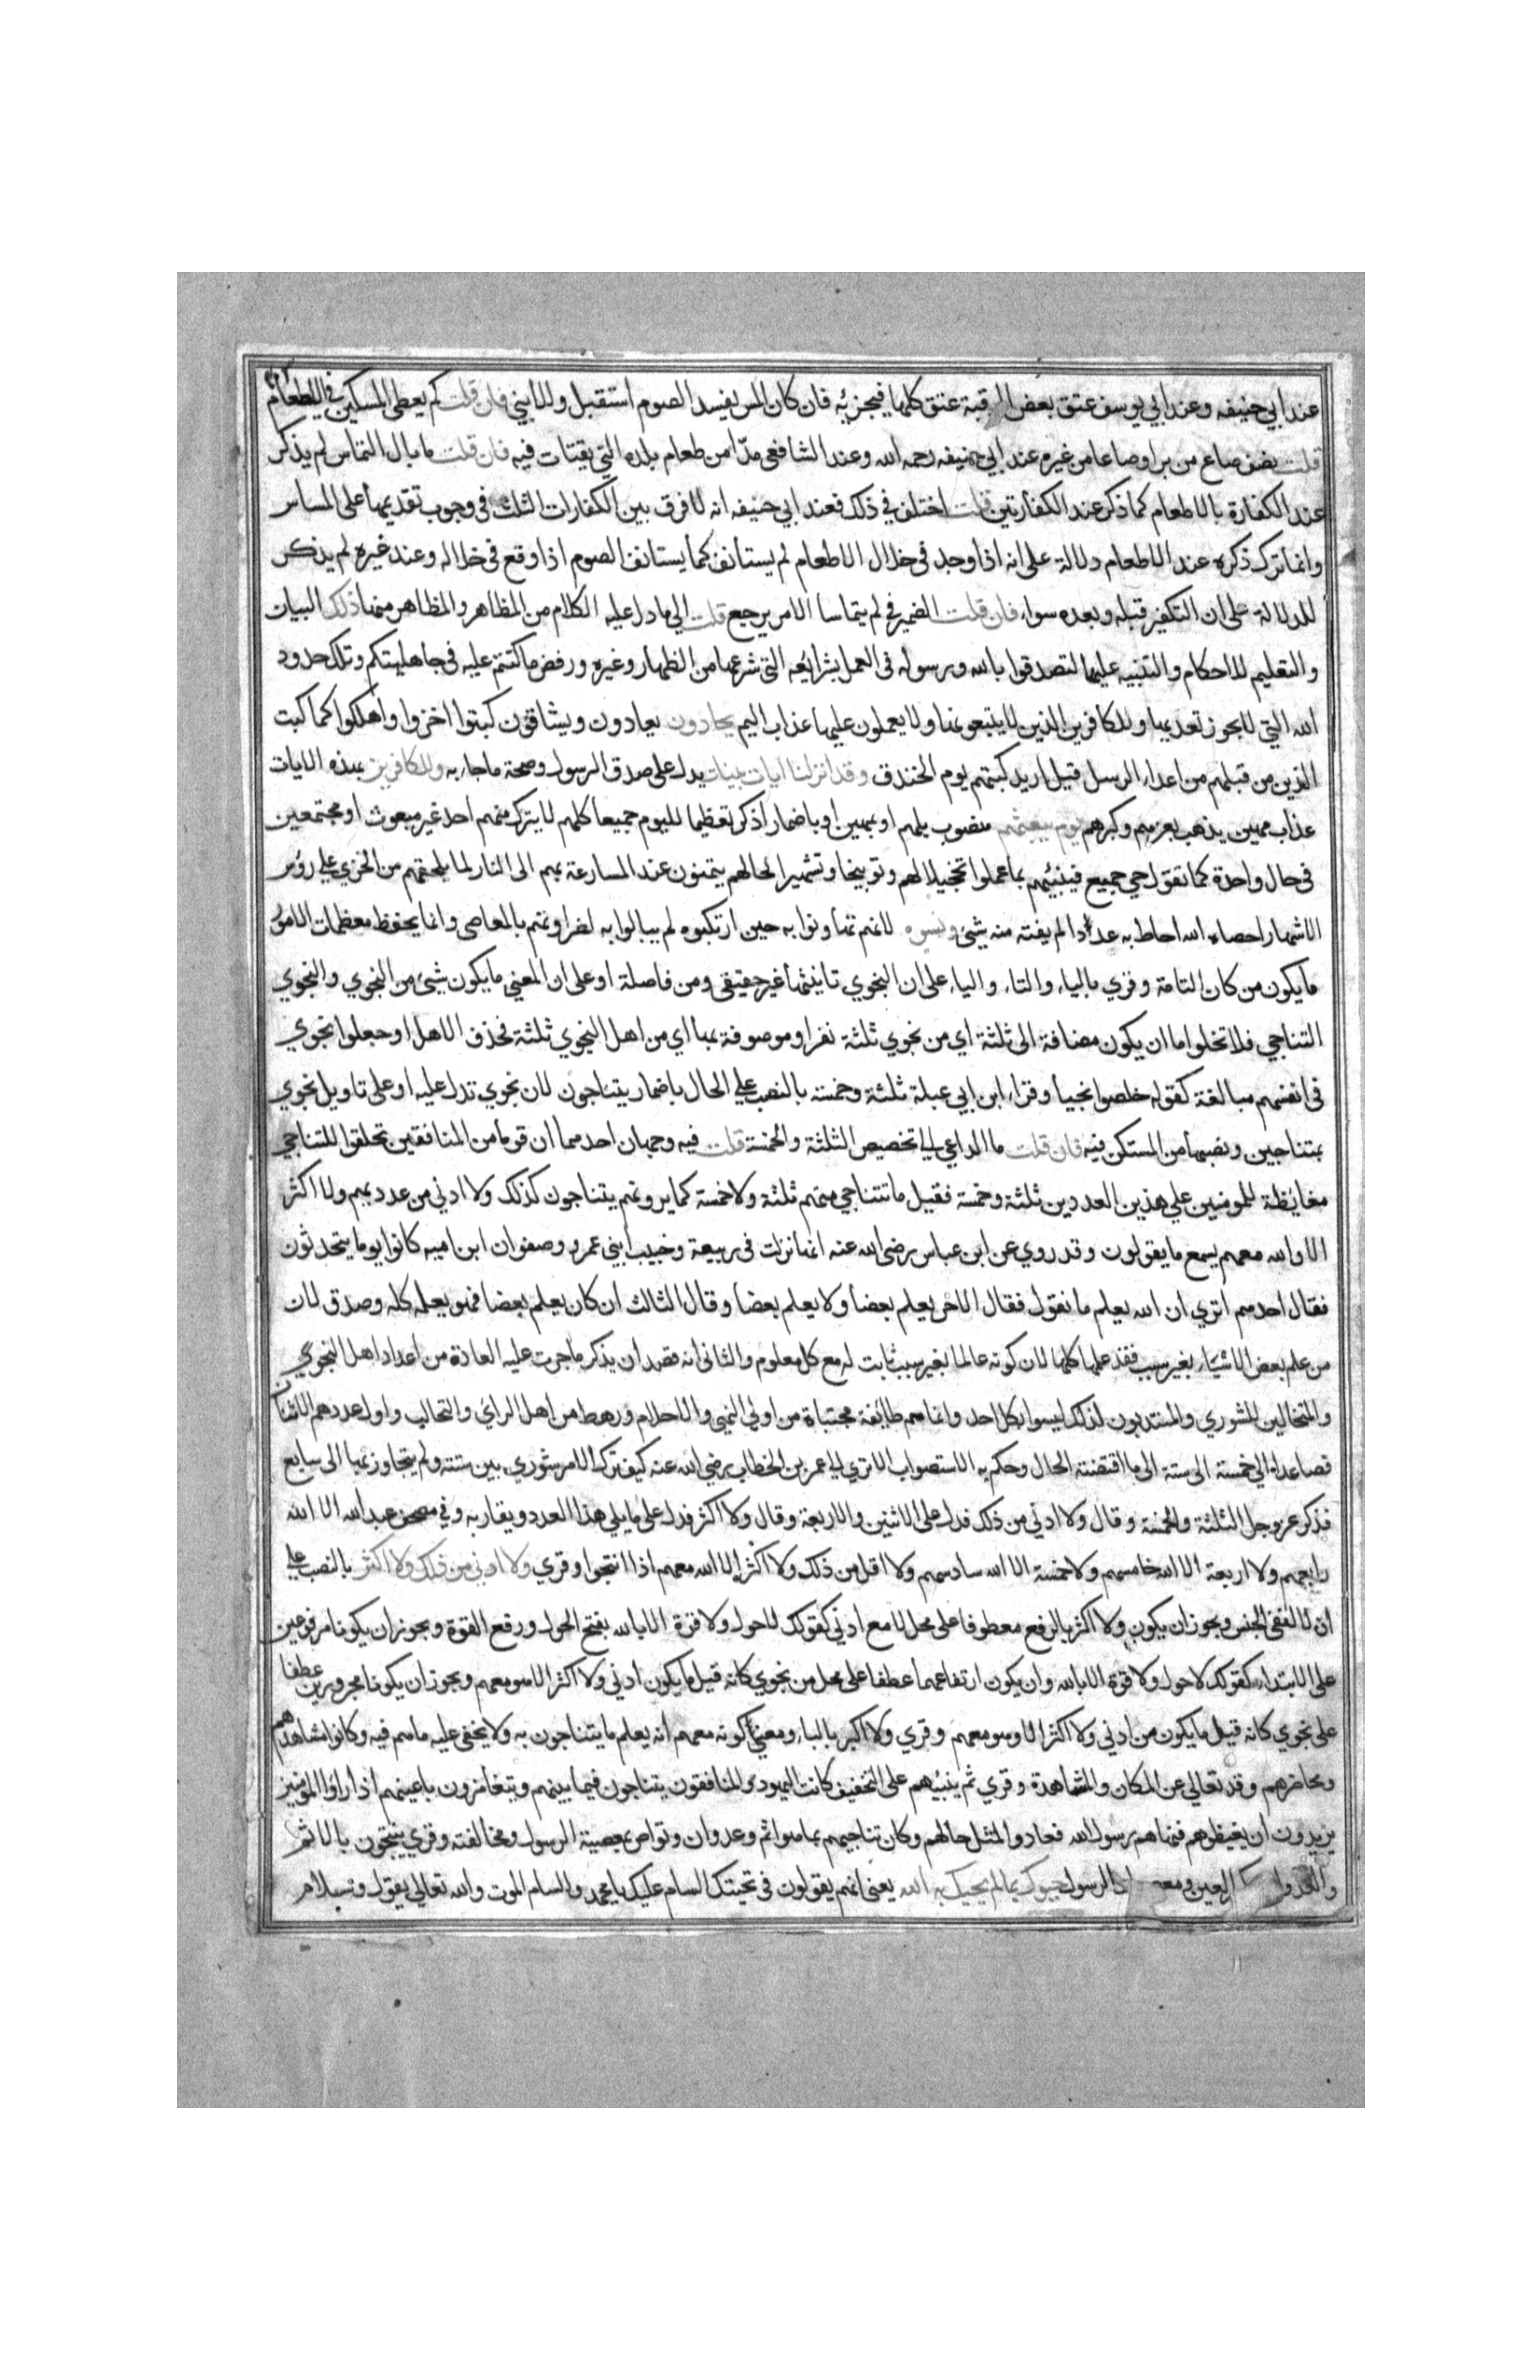 عند ابي حنيفه وعند ابي يوسف عتق بعض الرقبة عتق كلها فيجزيه فان كان المس يفسد الصوم استقبل والا بني فان قلت كم يعطى المسكين في الاطعام
قلت نصف صاع من بر او صاعا من غيره عند ابي حنيفه رحمه الله وعند الشافعي مدّا من طعام بلده التي يقتات فيه فان قلت ما بال التماس لم يذكر
عند الكفارة بالاطعام كما ذكر عند الكفارتين قلت اختلف في ذلك فعند ابي حنيفه انه لا فرق بين الكفارات الثلث في وجوب تقديمها على المساس
وانما ترك ذكره عند الاطعام دلالة على انه اذا وجد في خلال الاطعام لم يستأنف كما يستانف الصوم اذا وقع في خلاله وعند غيره لم يذكر
للدلالة على ان التكفير قبله وبعده سواء فان قلت الضمير في لم يتماسا الامر يرجع قلت الى ما دل عليه الكلام من المظاهر والمظاهر منها ذلك البيان
والتعليم للاحكام والتنبيه عليها لتصدقوا بالله ورسوله في العمل بشرائعه التي شرعها من الظهار وغيره ورفض ما كنتم عليه في جاهليتكم وتلك حدود
الله التي لا يجوز تعديها وللكافرين الذين لا يتبعونها ولا يعملون عليها عذاب اليم يحادون يعادون ويشاقون كبتوا اخزوا واهلكوا كما كبت
الذين من قبلهم من اعداء الرسل قيل اريد كبتهم يوم الخندق وقد انزلنا ايات بينات يدل على صدق الرسول وصحة ما جاء به وللكافرين بهذه الايات
عذاب مهين يذهب بعزهم وكبرهم يوم يبعثهم منصوب بلهم او بمهين او باضمار اذكر تعظيما لليوم جميعا كلهم لا يترك منهم احد غير مبعوث او مجتمعين
في حال واحدة كما تقول حي جميع فينبئهم بما عملوا تخجيلا لهم وتوبيخا وتشهيرا لحالهم يتمنون عند المسارعة بهم الى النار لما يلحقهم من الخزي على رؤس
الاشهار احصاه الله احاط به عددا لم يفته منه شيئ ونسوه لانهم تهاونوا به حين ارتكبوه لم يبالوا به لضراوتهم بالمعاصي وانما يحفظ معظمات الامور
ما يكون من كان التامة وقري بالياء والتاء والياء على ان النجوي تانيثها غير حقيقي ومن فاصلة او على ان المعني ما يكون شيئ من النجوي والنجوي
التناجي فلا تخلوا ما ان يكون مضافة الى ثلثة اي من نجوي ثلثة نفر او موصوفة بها اي من اهل النجوي ثلثة فحذف الاهل او جعلوا نجوي
في انفسهم مبالغة كقوله خلصوا نجيا وقراء ابن ابي عبلة ثلثة وخمسة بالنصب على الحال باضمار يتناجون لان نجوي تدل عليه او على تاويل نجوي
بمتناجين ونصبها من المستكن فيه فان قلت ما الداعي الى تخصيص الثلثة والخمسة قلت فيه وجهان احدهما ان قوما من المنافقين تحلقوا للتناجي
مغايظة للمومنين على هذين العددين ثلثة وخمسة فقيل ما تتناجي منهم ثلثة ولا خمسة كما يرونهم يتناجون كذلك ولا ادني من عددهم ولا اكثر
الا والله معهم يسمع ما يقولون وقد روي عن ابن عباس رضي الله عنه انها نزلت في ربيعة وخبيب ابني عمرو وصفوان ابن اميه كانوا يوما يتحدثون
فقال احدهم اتري ان الله يعلم ما نقول فقال الاخر يعلم بعضا ولا يعلم بعضا وقال الثالث ان كان يعلم بعضا فهو يعلم كله وصدق لان
من علم بعض الاشياء بغير سبب فقد علمها كلها لان كونه عالما بغير سبب ثابت له مع كل معلوم والثاني انه قصد ان يذكر ما جرت عليه العادة من اعداد اهل النجوي
والمتخالين للشوري والمنتدبون لذلك ليسوا بكل احد وانما هم طائفة مجتباة من اولي النهي والاحلام ورهط من اهل الراي والتجالب واول عددهم الاثنان
فصاعدا الي خمسة الى ستة الى ما اقتضته الحال وحكم به الاستصواب الا تري الي عمر بن الخطاب رضي الله عنه كيف ترك الامر شوري بين ستة ولم يتجاوز بها الى سابع
فذكر عز وجل الثلثة والخمسة وقال ولا ادني من ذلك فدل على الاثنين والاربعة وقال ولا اكثر فدل على ما يلي هذا العدد ويقاربه وفي مصحف عبد الله الا الله
رابعهم ولا اربعة الا الله خامسهم ولا خمسة الا الله سادسهم ولا اقل من ذلك ولا اكثر الا الله معهم اذا انتجوا وقري ولا ادني من ذلك ولا اكثر بالنصب على
ان لا لنفي الجنس ويجوز ان يكون ولا اكثر بالرفع معطوفا على محل لا مع ادني كقولك لا حول ولا قوة الا بالله بفتح الحول ورفع القوة ويجوز ان يكونا مرفوعين
على الابتداء كقولك لا حول ولا قوة الا بالله وان يكون ارتفاعهما عطفا على محل من نجوي كانه قيل ما يكون ادني ولا اكثر الا هو معهم ويجوز ان يكونا مجرورين عطفا
على نجوي كانه قيل ما يكون من ادني ولا اكثر الا وهو معهم وقري ولا اكبر بالباء ومعني كونه معهم انه يعلم ما يتناجون به ولا يخفى عليه ما هم فيه وكانه مشاهدهم
ومحاضرهم وقد تعالي عن المكان والمشاهدة وقري ثم ينبئهم على التخفيف كانت اليهود والمنافقون يتناجون فيما بينهم ويتغامزون باعينهم اذا راوا المومنين
يريدون ان يغيظوهم فنهاهم رسول الله فعادوا لمثل حالهم وكان تناجيهم بما هو اثم وعدوان وتواص بمعصية الرسول ومخالفته وقري ينتجون بالاثم
والعدوان العين ومعصيات الرسول حيوك بما لم يحيك به الله يعني انهم يقولون في تحيتك السام عليك يا محمد والسام الموت والله تعالي يقول وسلام